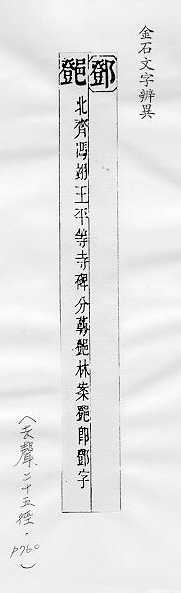 金石文字辨異
鄧
北齊馮翊王平等寺碑分蕚林案即鄧字
(去聲二十五徑.P760)